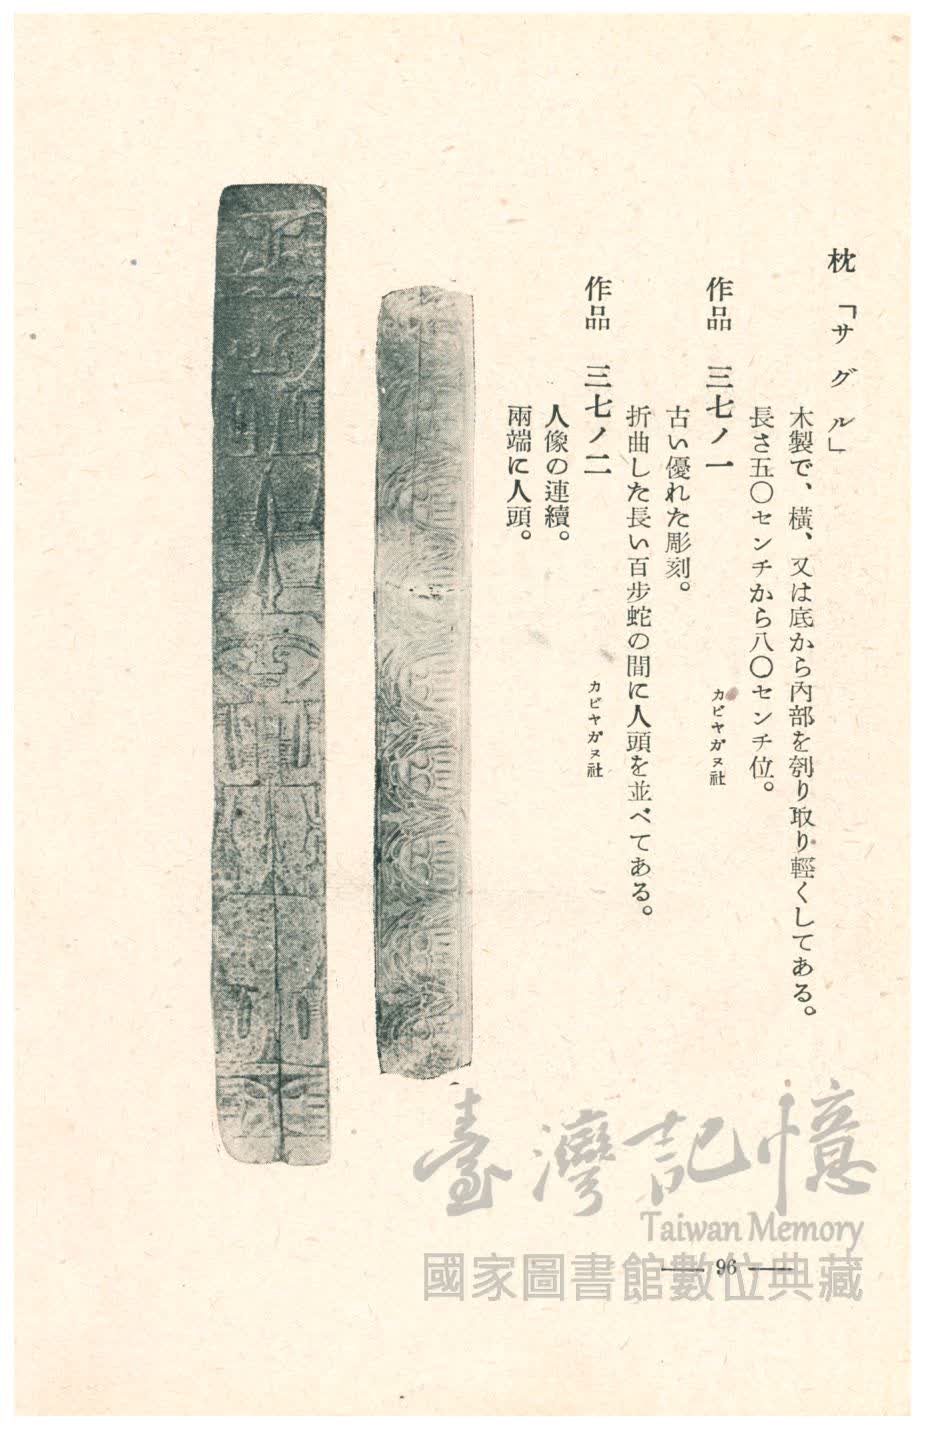 枕「サグル」
木製で、橫、又は底から內部を刳り取り輕くしてある。
長さ五〇センチから八〇センチ位。
作品 三七ノ一 カビヤガヌ社
古い優れた彫刻。
折曲した長い百步蛇の間に人頭を並べてある。
作品 三七ノ二 カビヤガヌ社
人像の連續。
兩端に人頭。
臺灣記憶
Taiwan Memory
國家圖書館數位典藏
— 96 —